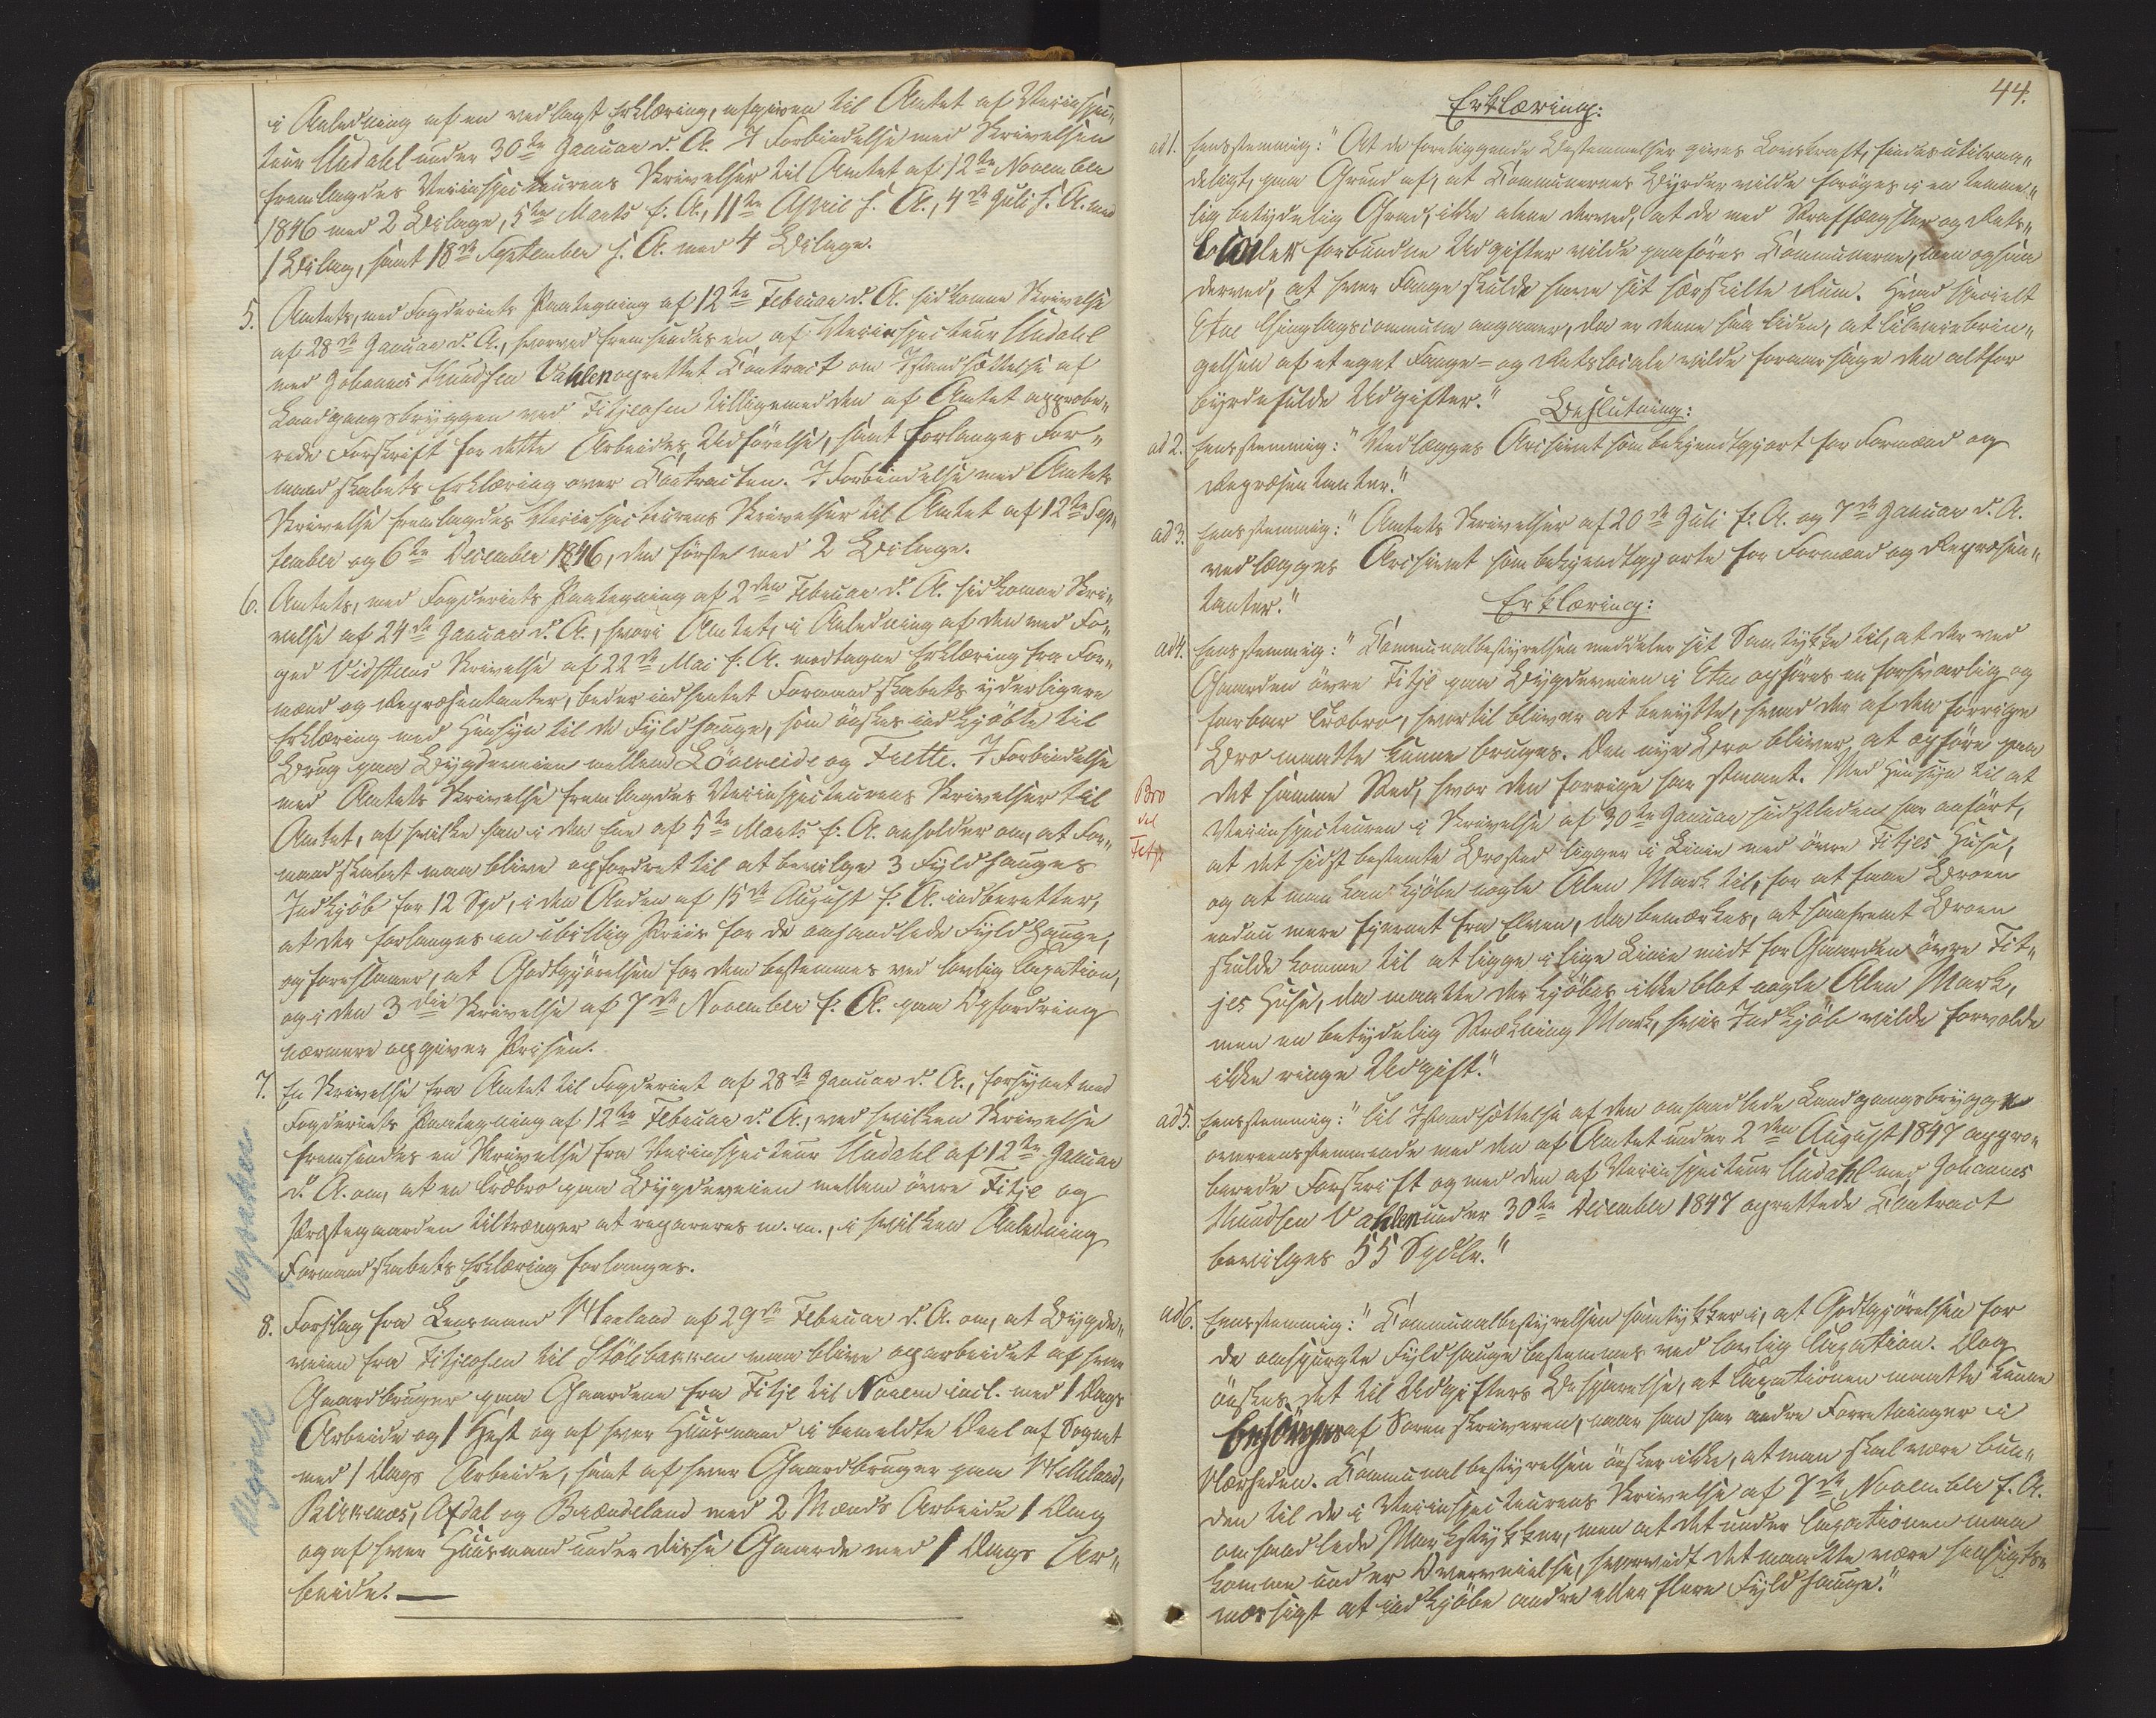 i Anledning af en vedlagt Erklæring, afgiven til Amtet af Veiinspec„
teur Undahl under 30te Januar d. A. I Forbindelse med Skrivelsen
fremlagdes Veiinspecteurens Skrivelser til Amtet af 12te November
1846 med 2 Bilage, 5te Marts f. A., 11te April f. A., 4de Juli f. A. med
1 Bilag, samt 18de September f. A. med 4 Bilage.
5. Amtets, med Fogderiets Paategning af 12te Februar d. A. hidkomne Skrivelse
af 28de Januar d. A., hvorved fremsendes en af Veiinspecteur Undahl
med Johannes Knudsen Vahlen oprettet Contract om Istandsættelse af
Landgangsbryggen ved Fitjeosen tilligemed den af Amtet approbe„
rede Forskrift for dette Arbeides Udførelse, samt forlanges For„
mandskabets Erklæring over Contracten. I Forbindelse med Amtets
Skrivelse fremlagdes Veiinspecteurens Skrivelser til Amtet af 12te Sep„
tember og 6te December 1846, den første med 2 Bilage.
6. Amtets, med Fogderiets Paategning af 2den Februar d. A. hidkomne Skri„
velse af 24de Januar d. A., hvori Amtet, i Anledning af den med Fo„
ged Vidsteens Skrivelse af 22de Mai f. A. modtagne Erklæring fra For„
mænd og Repræsentanter, beder indhentet Formandskabets yderligere
Erklæring med Hensyn til de Fyldhauge, som ønskes indkjøbte til
Brug paa Bygdeveien mellem Løvereide og Frette. I Forbindelse
med Amtets Skrivelse fremlagdes Veiinspecteurens Skrivelser til
Amtet, af hvilke han i den Ene af 5te Marts f. A. anholder om, at For„
mandskabet maa blive opfordret til at bevilge 3 Fyldhauges
Indkjøb for 12 Spd, i den Anden af 15de August f. A. indberetter,
at der forlanges en ubillig Priis for de omhandlede Fyldhauge,
og foreslaaer, at Godtgjørelsen for dem bestemmes ved lovlig Taxation,
og i den 3die Skrivelse af 7de November f. A. paa Opfordring
nærmere opgiver Prisen.
7. En Skrivelse fra Amtet til Fogderiet af 28de Januar d. A., forsynet med
Fogderiets Paategning af 12te Februar d. A., ved hvilken Skrivelse
fremsendes en Skrivelse fra Veiinspecteur Undahl af 12te Januar
d. A. om, at en Træbro paa Bygdeveien mellem øvre Fitje og
Præstegaarden tiltrænger at repareres m. m., i hvilken Anledning
Formandskabets Erklæring forlanges.
8. Forslag fra Lensmand Meeland af 29de Februar d. A. om, at Bygde„
veien fra Fitjeosen til Stølsbakken maa blive oparbeidet af hver
Gaardbruger paa Gaardene fra Fitje til Noven incl. med 1 Dags
Arbeide og 1 Hest og af hver Huusmand i bemeldte Deel af Sognet
med 1 Dags Arbeide, samt af hver Gaardbruger paa Melleland,
Birkenæs, Afdal og Brændeland med 2 Mands Arbeide 1 Dag
og af hver Huusmand under disse Gaarde med 1 Dags Ar„
beide.
44.
Erklæring:
ad 1. Eenstemmig: "At de foreliggende Bestemmelser gives Lovskraft, findes utilraa„
deligt, paa Grund af, at Communernes Byrder vilde forøges i en temme„
lig betydelig Grad, ikke alene derved, at de med Straffængsler og Rets„
localer forbundne Udgifter vilde paaføres Communerne, men ogsaa
derved, at hver Fange skulde have sit særskilte Rum. Hvad specielt
Etne Thinglagscommune angaaer, da er denne saa liden, at tilveiebrin„
gelsen af et eget Fange- og Retslocale vilde foraarsage den altfor
byrdefulde Udgifter."
Beslutning:
ad 2. Eenstemmig: "Vedlægges Archivet som bekjendtgjort for Formænd og
Repræsentanter."
ad 3. Eenstemmig: "Amtets Skrivelser af 20de Juli f. A. og 7de Januar d. A.
vedlægges Archivet som bekjendtgjorte for Formænd og Repræsen„
tanter."
Erklæring:
ad 4. Eenstemmig: "Communalbestyrelsen meddeler sit Samtykke til, at der ved
Gaarden øvre Fitje paa Bygdeveien i Etne opføres en forsvarlig og
farbar Træbro, hvortil bliver at benytte, hvad der af den forrige
Bro maatte kunne bruges. Den nye Bro bliver at opføre paa
det samme Sted, hvor den forrige har staaet. Med Hensyn til at
Veiinspecteuren i Skrivelse af 30te Januar sidstleden har anført,
at det sidst bestemte Brosted ligger i Linie med øvre Fitjes Huse,
og at man kan kjøbe nogle Alen Mark til, for at faae Broen
endnu mere fjernet fra Elven, da bemærkes, at saafremt Broen
skulde komme til at ligge i lige Linie midt for Gaarden øvre Fit„
jes Huse, da maatte der kjøbes ikke blot nogle Alen Mark,
men en betydelig Strækning Mark, hvis Indkjøb vilde forvolde
ikke ringe Udgift."
Bro
vel
Fitje
ad 5. Eenstemmig: "Til Istandsættelse af den omhandlede Landgangsbrygge
overeensstemmende med den af Amtet under 2den August 1847 appro„
berede Forskrift og med den af Veiinspecteur Undahl med Johannes
Knudsen Vahlen under 30te December 1847 oprettede Contract
bevilges 55 Spdlr."
ad 6. Eenstemmig: "Communalbestyrelsen samtykker i, at Godtgjørelsen for
de omspurgte Fyldhauge bestemmes ved lovlig Taxation. Dog
ønskes det til Udgifters Besparelse, at Taxationen maatte kunne
besørges af Sorenskriveren, naar han har andre Forretninger i
Nærheden. Communalbestyrelsen ønsker ikke, at man skal være bun„
den til de i Veiinspecteurens Skrivelse af 7de November f. A.
omhandlede Markstykker, men at det under Taxationen maa
komme under Overveielse, hvorvidt det maatte være hensigts„
mæssigst at indkjøbe andre eller flere Fyldhauge."